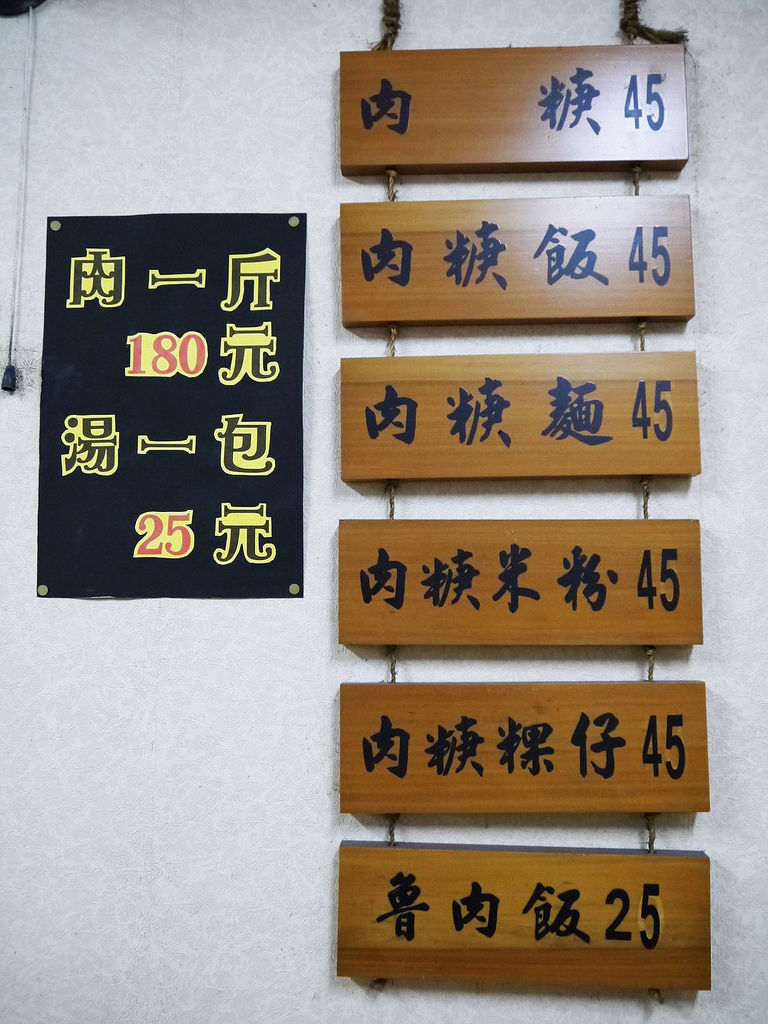 肉一斤
180元
湯一包
25元
肉焿 45
肉焿飯 45
肉焿麵 45
肉焿米粉 45
肉焿粿仔 45
魯肉飯 25